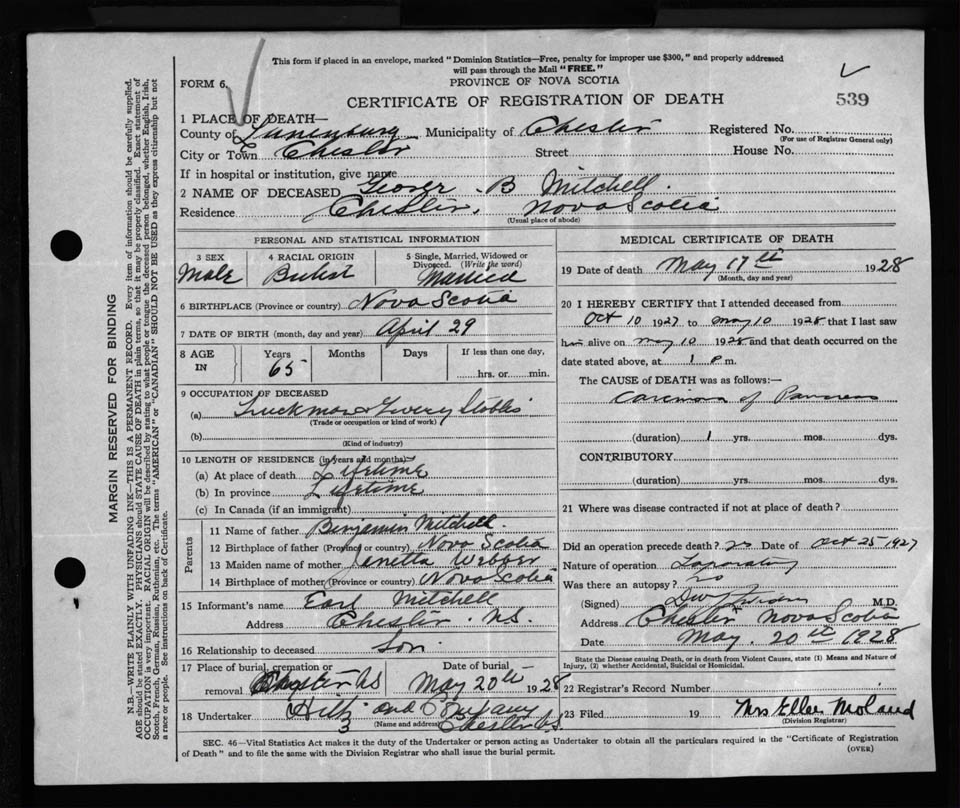 This form if placed in an envelope, marked "Dominion Statistics—Free, penalty for improper use $300," and properly addressed
will pass through the Mail "FREE."
FORM 6.
PROVINCE OF NOVA SCOTIA
CERTIFICATE OF REGISTRATION OF DEATH
539
1 PLACE OF DEATH—
County of Lunenburg Municipality of Chester Registered No.
(For use of Registrar General only)
City or Town Chester Street House No.
If in hospital or institution, give name
2 NAME OF DECEASED B Mitchell.
Residence Chester, Nova Scotia
(Usual place of abode)
PERSONAL AND STATISTICAL INFORMATION
3 SEX 4 RACIAL ORIGIN 5 Single, Married, Widowed or Divorced. (Write the word)
Male British Married
6 BIRTHPLACE (Province or country) Nova Scotia
7 DATE OF BIRTH (month, day and year) April 29
8 AGE IN Years Months Days If less than one day,
65 hrs. or min.
9 OCCUPATION OF DECEASED
(a) Truckman & Livery Stables
(Trade or occupation or kind of work)
(b)
(Kind of industry)
10 LENGTH OF RESIDENCE (in years and months)—
(a) At place of death Lifetime
(b) In province Lifetime
(c) In Canada (if an immigrant)
Parents
11 Name of father Benjamin Mitchell.
12 Birthplace of father (Province or country) Nova Scotia
13 Maiden name of mother
14 Birthplace of mother (Province or country) Nova Scotia
15 Informant's name Earl Mitchell
Address Chester N.S.
16 Relationship to deceased Son
17 Place of burial, cremation or removal Chester NS
Date of burial May 20th 1928
18 Undertaker Hiltz and Company
(Name and address) Chester N.S.
MEDICAL CERTIFICATE OF DEATH
19 Date of death May 17th 1928
(Month, day and year)
20 I HEREBY CERTIFY that I attended deceased from
Oct 10 1927 to May 10 1928 that I last saw
him alive on May 10 1928 and that death occurred on the
date stated above, at 1 P m.
The CAUSE OF DEATH was as follows:—
Carcinoma of Pancreas
(duration) 1 yrs. mos. dys.
CONTRIBUTORY
(duration) yrs. mos. dys.
21 Where was disease contracted if not at place of death?
Did an operation precede death? Date of Oct 25 1927
Nature of operation
Was there an autopsy? no
(Signed) M.D.
Address Chester Nova Scotia
Date May. 20th 1928
State the Disease causing Death, or in death from Violent Causes, state (1) Means and Nature of
Injury, (2) whether Accidental, Suicidal or Homicidal.
22 Registrar's Record Number
23 Filed 19 Mrs Ellen Moland
(Division Registrar)
SEC. 46—Vital Statistics Act makes it the duty of the Undertaker or person acting as Undertaker to obtain all the particulars required in the "Certificate of Registration
of Death" and to file the same with the Division Registrar who shall issue the burial permit.
(OVER)
MARGIN RESERVED FOR BINDING
N.B.—WRITE PLAINLY WITH UNFADING INK—THIS IS A PERMANENT RECORD. Every item of information should be carefully supplied.
AGE should be stated EXACTLY. PHYSICIANS should STATE CAUSE OF DEATH in plain terms, so that it may be properly classified. Exact statement of
OCCUPATION is very important. RACIAL ORIGIN will be described by stating to what people or tongue the deceased person belonged, whether English, Irish,
Scotch, French, German, Russian, Ruthenian, etc. The terms "AMERICAN" or "CANADIAN" SHOULD NOT BE USED as they express citizenship but not
a race or people. See instructions on back of Certificate.